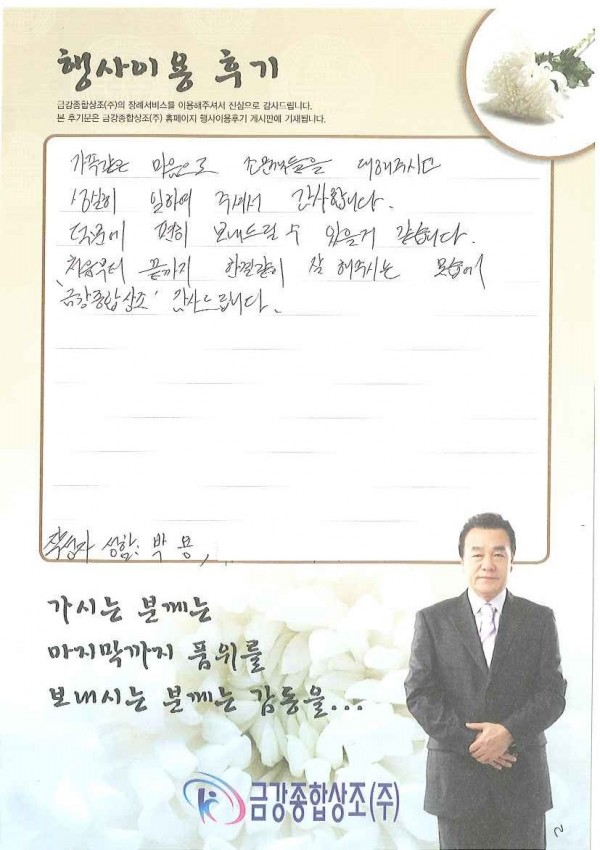 행사이용 후기
금강종합상조(주)의 장례서비스를 이용해주셔서 진심으로 감사드립니다.
본 후기문은 금강종합상조(주) 홈페이지 행사이용후기 게시판에 기재됩니다.
가족같은 마음으로 조문객들을 대해주시고
성실히 일하여 주셔서 감사합니다.
덕분에 편히 보내드릴 수 있을거 같습니다.
처음부터 끝까지 한결같이 잘 해주시는 모습에
'금강종합상조' 감사드립니다.
작성자 성함: 박 용
가시는 분께는
마지막까지 품위를
보내시는 분께는 감동을...
금강종합상조(주)